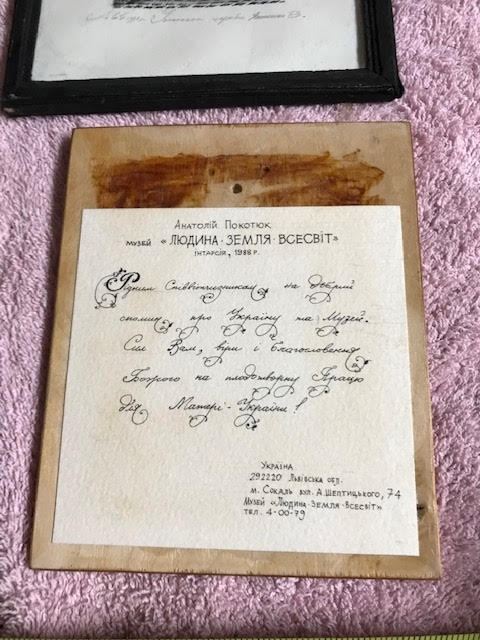 Анатолій Покотюк
музей «ЛЮДИНА·ЗЕМЛЯ·ВСЕСВІТ»
інтарсія, 1988 р.
Рідним Співвітчизникам на добрий
спомин про Україну та Музей.
Сил Вам, віри і Благословення
Божого на плодотворну Працю
для Матері-України!
Україна
292220 Львівська обл.
м. Сокаль вул. А.Шептицького, 74
Музей «Людина·Земля·Всесвіт»
тел. 4-00-79